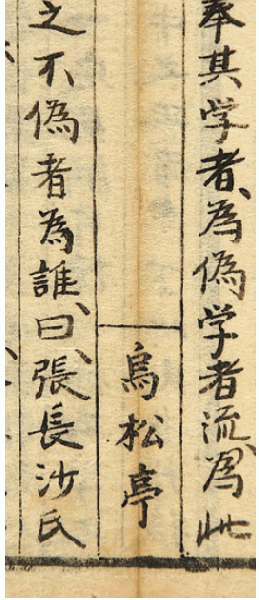 奉其学者、為偽学者流、為此
烏松亭
之不偽者為誰、曰、張長沙氏